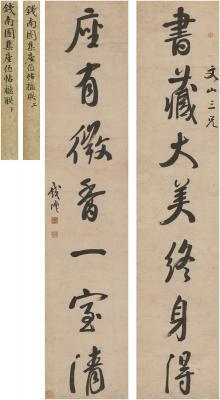 文山三兄
書藏大美終身得
座有微香一室清
錢灃
錢南園集座位帖楹联上
錢南園集座位帖楹联下